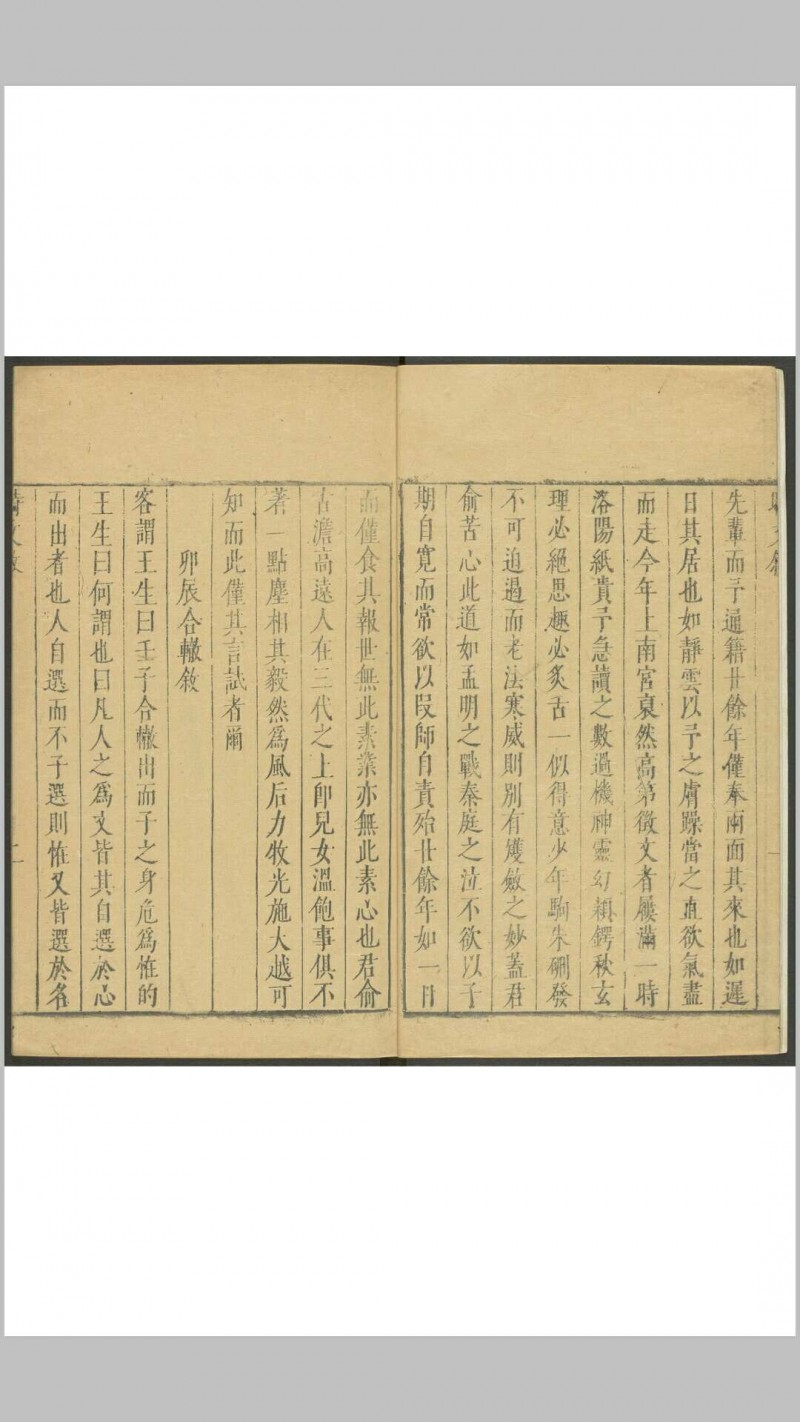 先輩而予通籍廿餘年僅奉南面其來也如遲
日其居也如靜雲以予之膚躁當之直欲氣盡
而走今年上南宮裒然高第徵文者屨滿一時
洛陽紙貴予急讀之數過機神靈幻穎鍔秋玄
理必絕思趣必炙舌一似得意少年駒朱硎發
不可迫遏而老法寒威則别有矱斂之妙蓋君
俞苦心此道如孟明之戰秦庭之泣不欲以子
期自寬而常欲以段師自責殆廿餘年如一日
而僅食其報世無此素業亦無此素心也君俞
古澹高遠人在三代之上卽兒女溫飽事俱不
著一點塵相其毅然爲風后力牧光施大越可
知而此僅其言試者爾
卯辰合轍敘
客謂王生曰壬子合轍出而子之身危爲怪的
王生曰何謂也曰凡人之爲文皆其自選於心
而出者也人自選而不子選則怪又皆選於名
時文敘
二